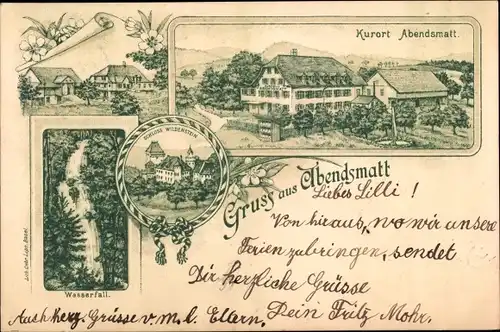 Kurort Abendsmatt.
SCHLOSS WILDENSTEIN
Gruss aus Abendsmatt
Wasserfall.
Liebes Lilli!
Von hier aus, wo wir unsere
Ferien zubringen, sendet
Dir herzliche Grüsse
Dein Fritz Mohr.
Auch herz. Grüsse v. m. l. Eltern,